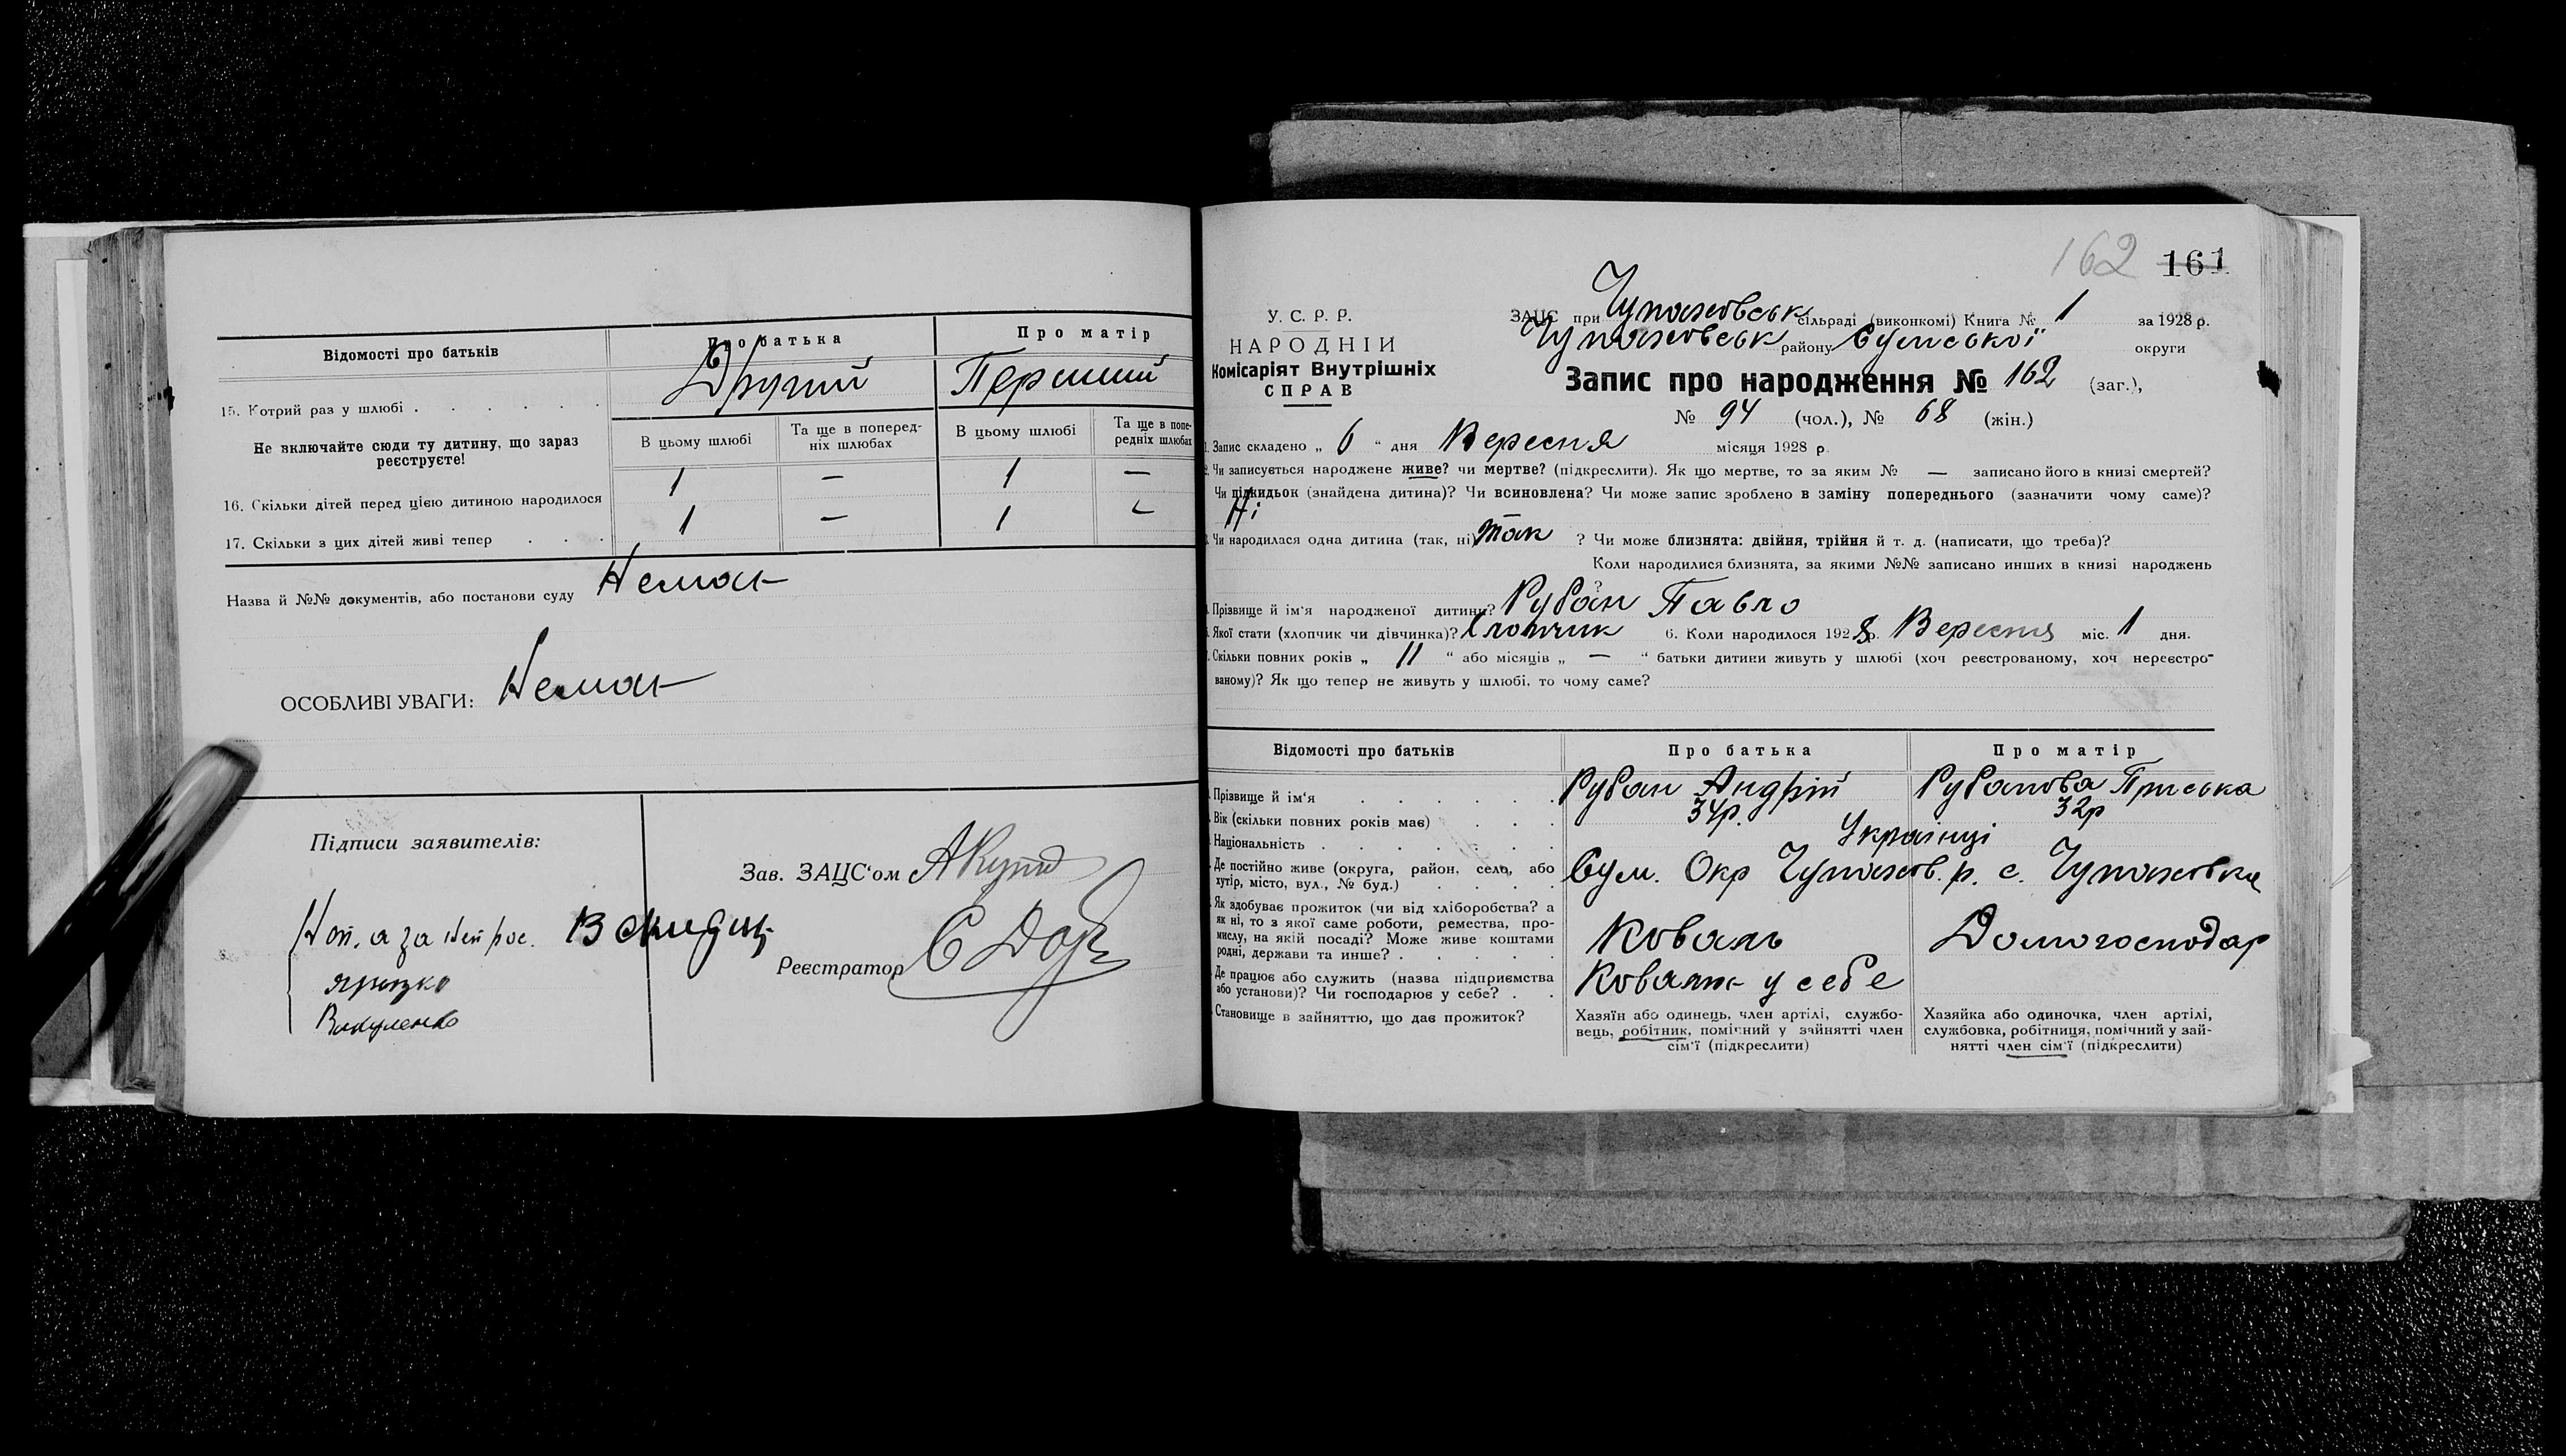 Відомості про батьків
Про батька
Про матір
15. Котрий раз у шлюбі
Другий
Перший
Не включайте сюди ту дитину, що зараз реєструєте!
В цьому шлюбі
Та ще в поперед-
ніх шлюбах
В цьому шлюбі
Та ще в попе-
редніх шлюбах
16. Скільки дітей перед цією дитиною народилося
1 — 1 —
17. Скільки з цих дітей живі тепер
1 — 1
Назва й №№ документів, або постанови суду Немає
ОСОБЛИВІ УВАГИ: Немає
Підписи заявителів:
Зав. ЗАЦС'ом
Вакуленко
Реєстратор
162 161
У. С. Р. Р.
НАРОДНІЙ
Комісаріят Внутрішніх
СПРАВ
ЗАЦС при Чупаховськ сільраді (виконкомі) Книга № 1 за 1928 р.
Чупаховськ району Сумської округи
Запис про народження № 162 (заг.),
№ 94 (чол.), № 68 (жін.)
1. Запис складено „ 6 “ дня Вересня місяця 1928 р.
2. Чи записується народжене живе? чи мертве? (підкреслити). Як що мертве, то за яким № — записано його в книзі смертей?
Чи підкидьок (знайдена дитина)? Чи всиновлена? Чи може запис зроблено в заміну попереднього (зазначити чому саме)?
Ні
Чи народилася одна дитина (так, ні) так ? Чи може близнята: двійня, трійня й т. д. (написати, що треба)?
Коли народилися близнята, за якими №№ записано инших в книзі народжень
?
Прізвище й ім'я народженої дитини? Рубан Павло
Якої стати (хлопчик чи дівчинка)? Хлопчик 6. Коли народилося 1928 р. Вересня міс. 1 дня.
Скільки повних років „ 11 “ або місяців „ — “ батьки дитини живуть у шлюбі (хоч реєстрованому, хоч нереєстро-
ваному)? Як що тепер не живуть у шлюбі, то чому саме?
Відомості про батьків
Про батька
Про матір
Прізвище й ім'я
Рубан Андрій
Рубанова Приська
Вік (скільки повних років має)
34р.
32р
Національність
Українці
Де постійно живе (округа, район, село, або
хутір, місто, вул., № буд.)
Сум. Окр Чупахов. р. с. Чупаховка
Як здобуває прожиток (чи від хліборобства? а
як ні, то з якої саме роботи, ремества, про-
мислу, на якій посаді? Може живе коштами
родні, держави та инше?
Коваль
Домогосподар
Де працює або служить (назва підприємства
або установи)? Чи господарює у себе?
у себе
Становище в зайняттю, що дає прожиток?
Хазяїн або одинець, член артілі, службо-
вець, робітник, помічний у зайнятті член
сім'ї (підкреслити)
Хазяйка або одиночка, член артілі,
службовка, робітниця, помічний у зай-
нятті член сім'ї (підкреслити)